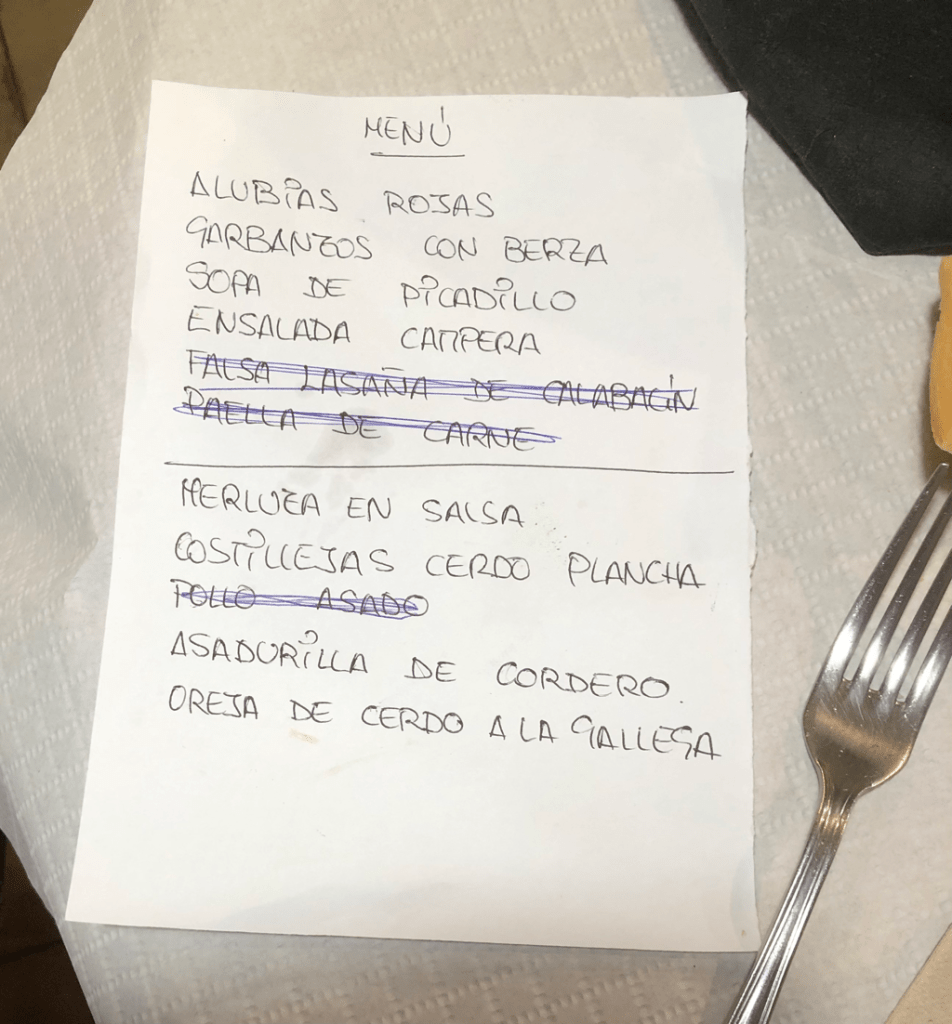 MENÚ
ALUBIAS ROJAS
GARBANZOS CON BERZA
SOPA DE PICADILLO
ENSALADA CAMPERA
FALSA LASAÑA DE CALABACÍN
PAELLA DE CARNE
MERLUZA EN SALSA
COSTILLEJAS CERDO PLANCHA
POLLO ASADO
ASADURILLA DE CORDERO.
OREJA DE CERDO A LA GALLEGA